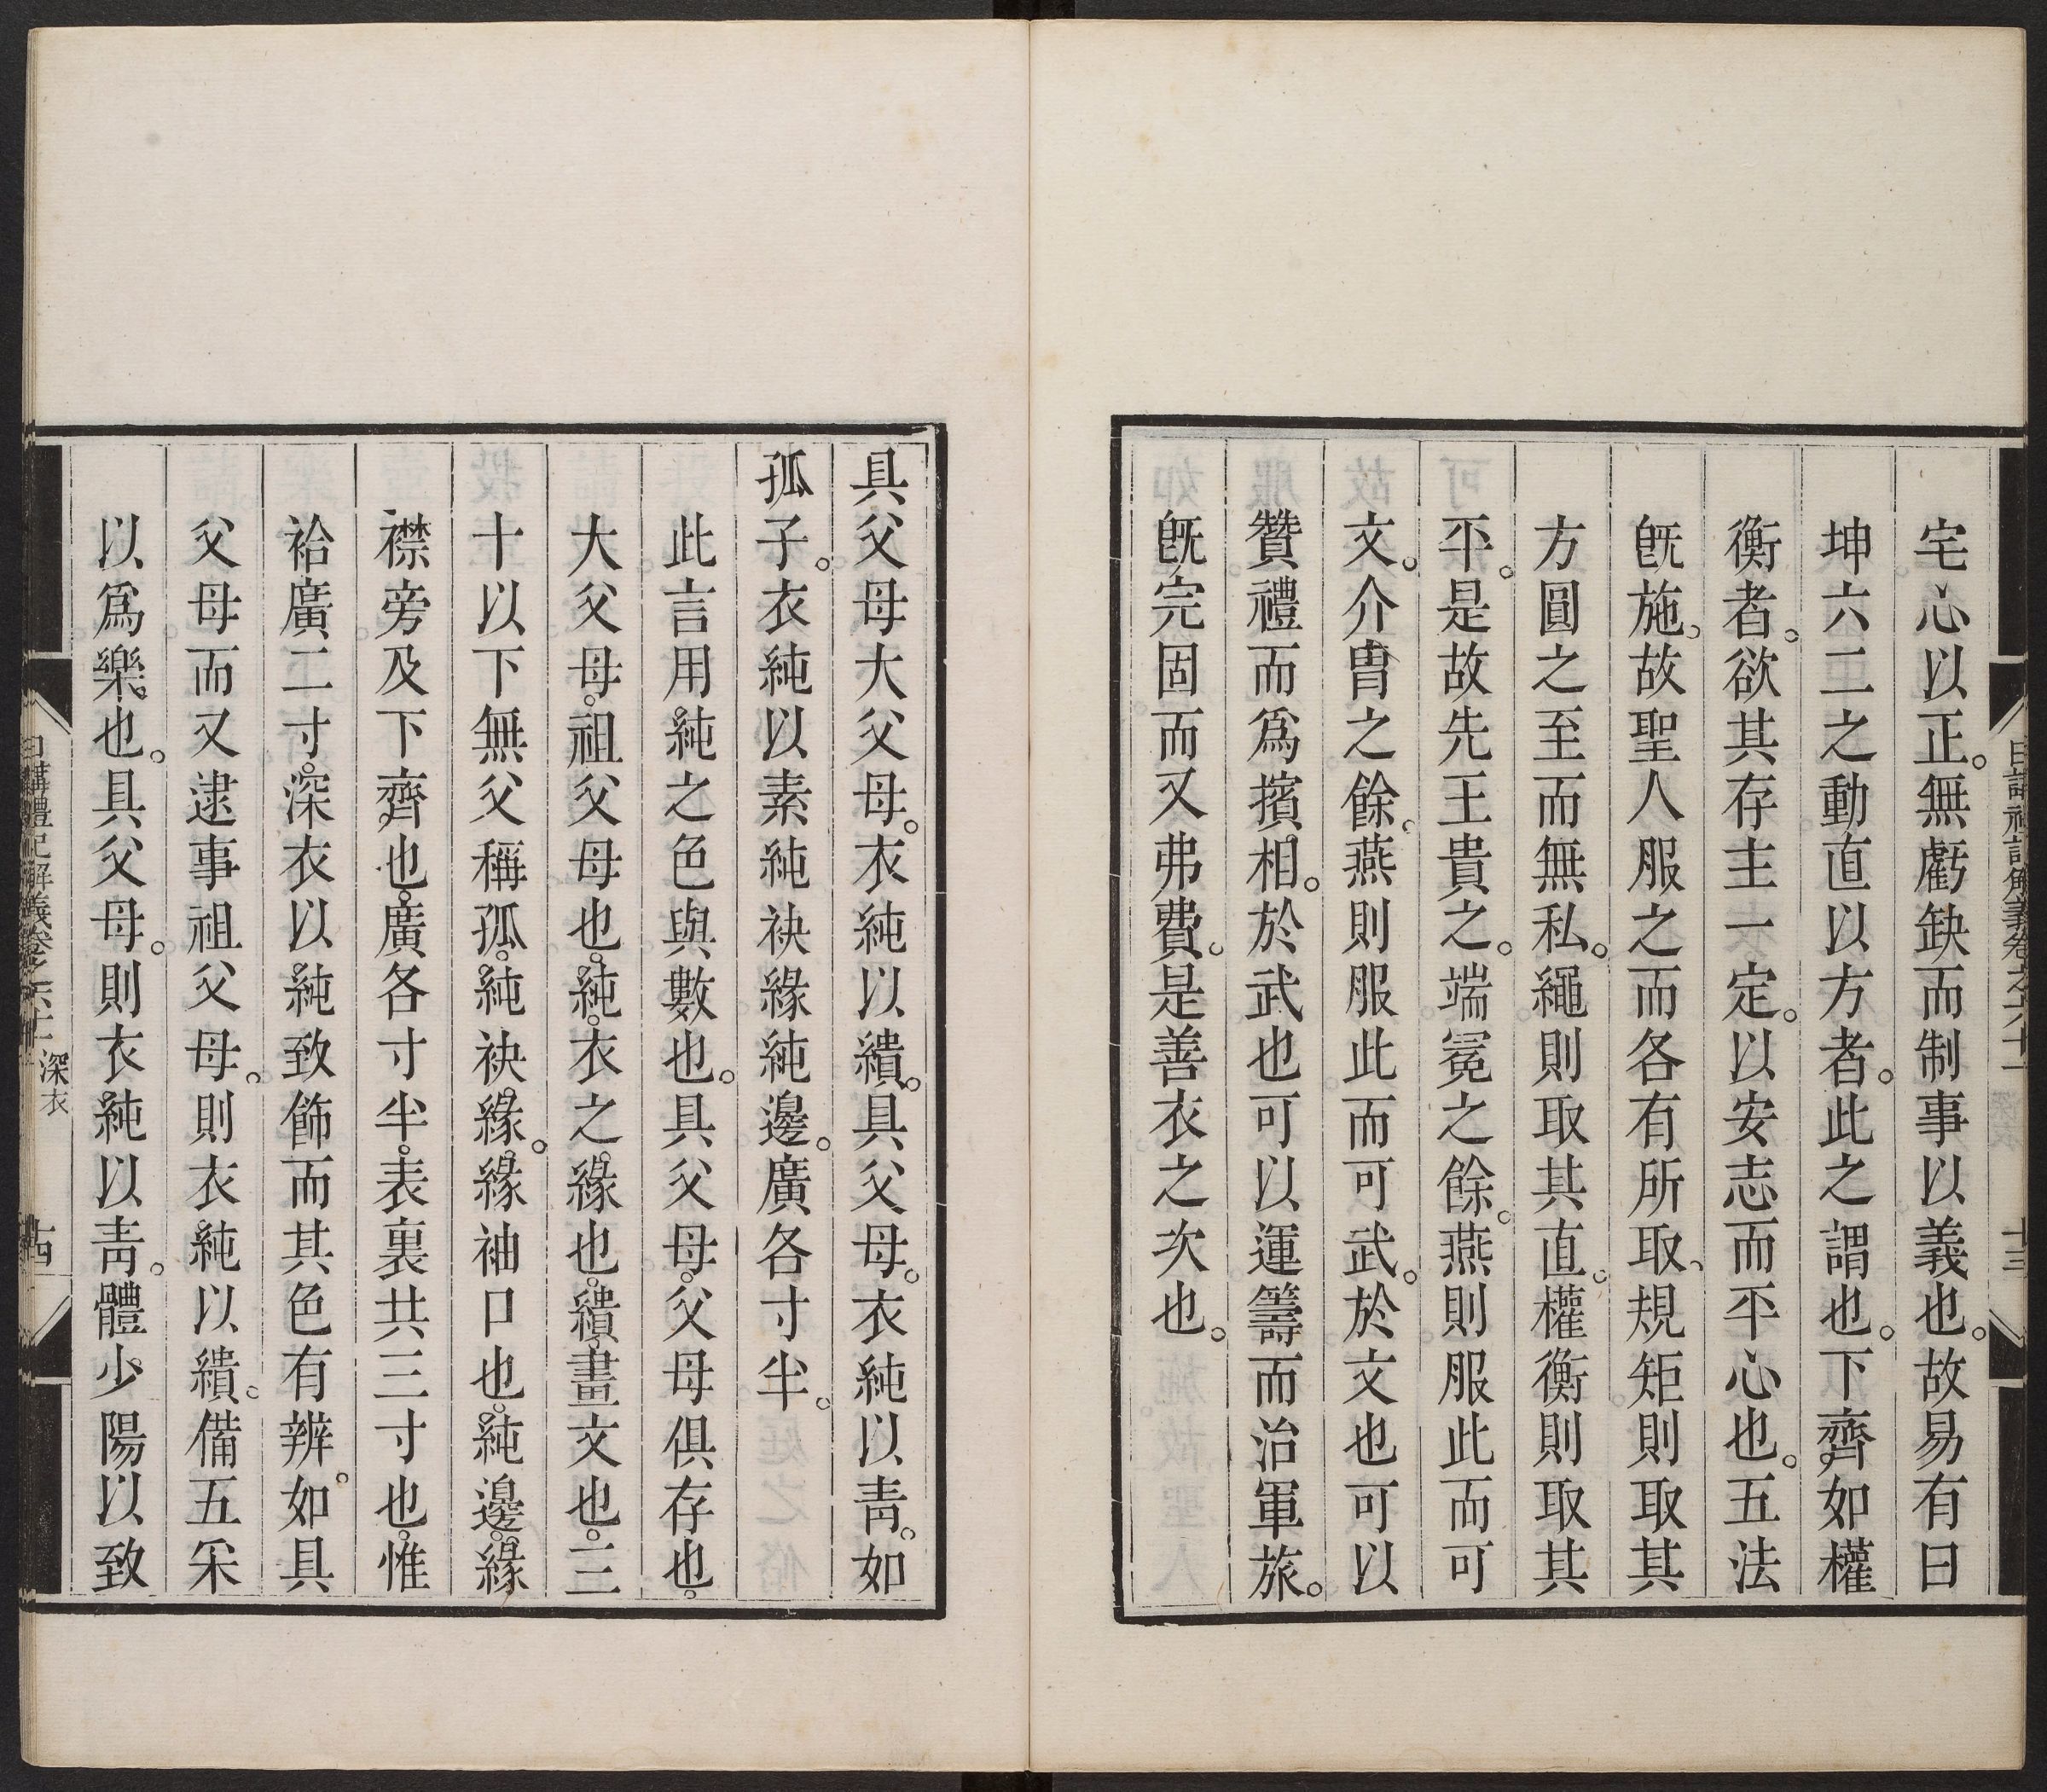 宅心以正。無虧缺而制事以義也。故易有曰
坤六二之動直以方者。此之謂也。下齊如權
衡者。欲其存主一定。以安志而平心也。五法
旣施。故聖人服之而各有所取。規矩則取其
方圓之至而無私。繩則取其直。權衡則取其
平。是故先王貴之。端冕之餘。燕則服此而可
文。介冑之餘。燕則服此而可武。於文也可以
贊禮而爲擯相。於武也可以運籌而治軍旅。
旣完固而又弗費。是善衣之次也。
日講禮記解義卷之六十一
十三
具父母大父母。衣純以繢。具父母。衣純以靑。如
孤子。衣純以素純袂緣純邊。廣各寸半。
此言用純之色與數也。具父母。父母俱存也。
大父母。祖父母也。純。衣之緣也。繢。畫文也。三
十以下無父稱孤。純袂。緣。緣袖口也。純邊。緣
襟旁及下齊也。廣各寸半。表裏共三寸也。惟
袷廣二寸。深衣以純致飾而其色有辨。如具
父母而又逮事祖父母。則衣純以繢。備五采
以爲樂也。具父母。則衣純以靑。體少陽以致
日講禮記解義卷之六十一
深衣
十四